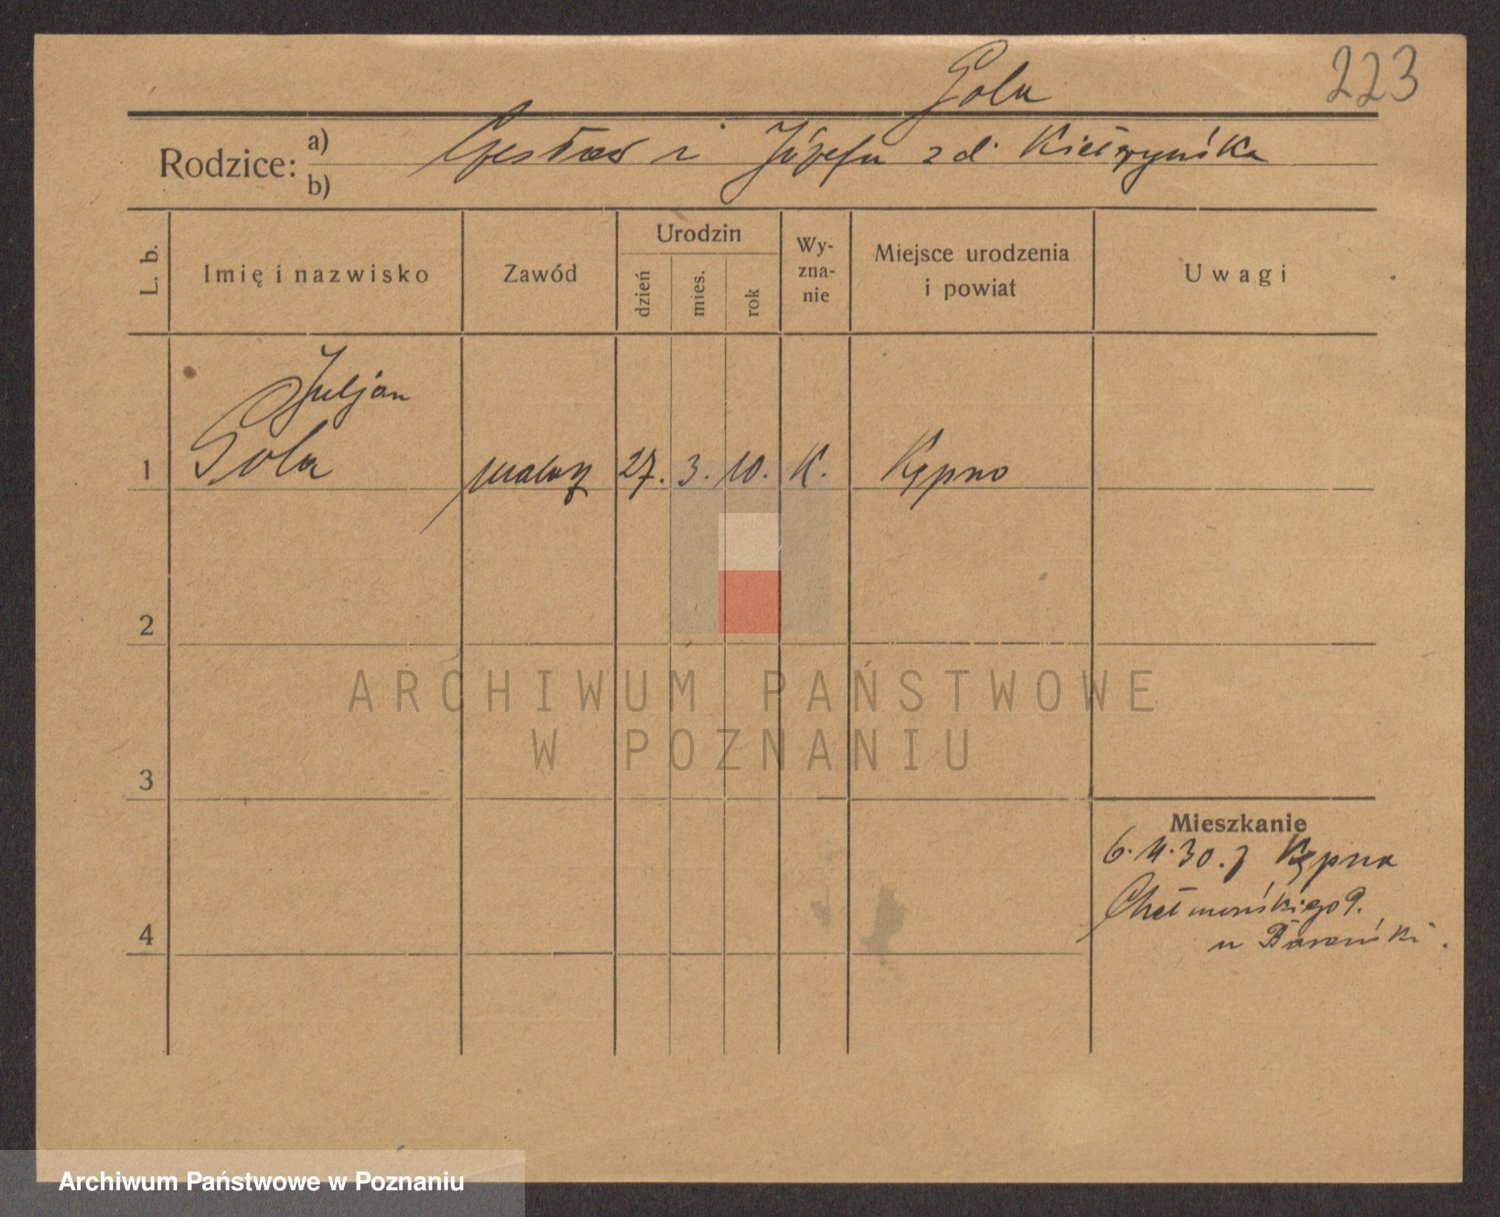 Gola
223
Rodzice: a) Czesław i Józefa z d.
b)
L. b.
Imię i nazwisko
Zawód
Urodzin
dzień
mies.
rok
Wy-
zna-
nie
Miejsce urodzenia
i powiat
Uwagi
Juljan
1 Gola malarz 27. 3. 10. K. Kępno
2
3
4
Mieszkanie
6. 30. z Kępna
Chełmońskiego 9.
u Barański.
ARCHIWUM PAŃSTWOWE
W POZNANIU
Archiwum Państwowe w Poznaniu